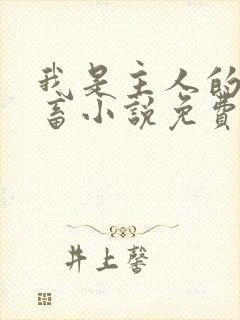 我是主人的
畜小說免費
井上馨